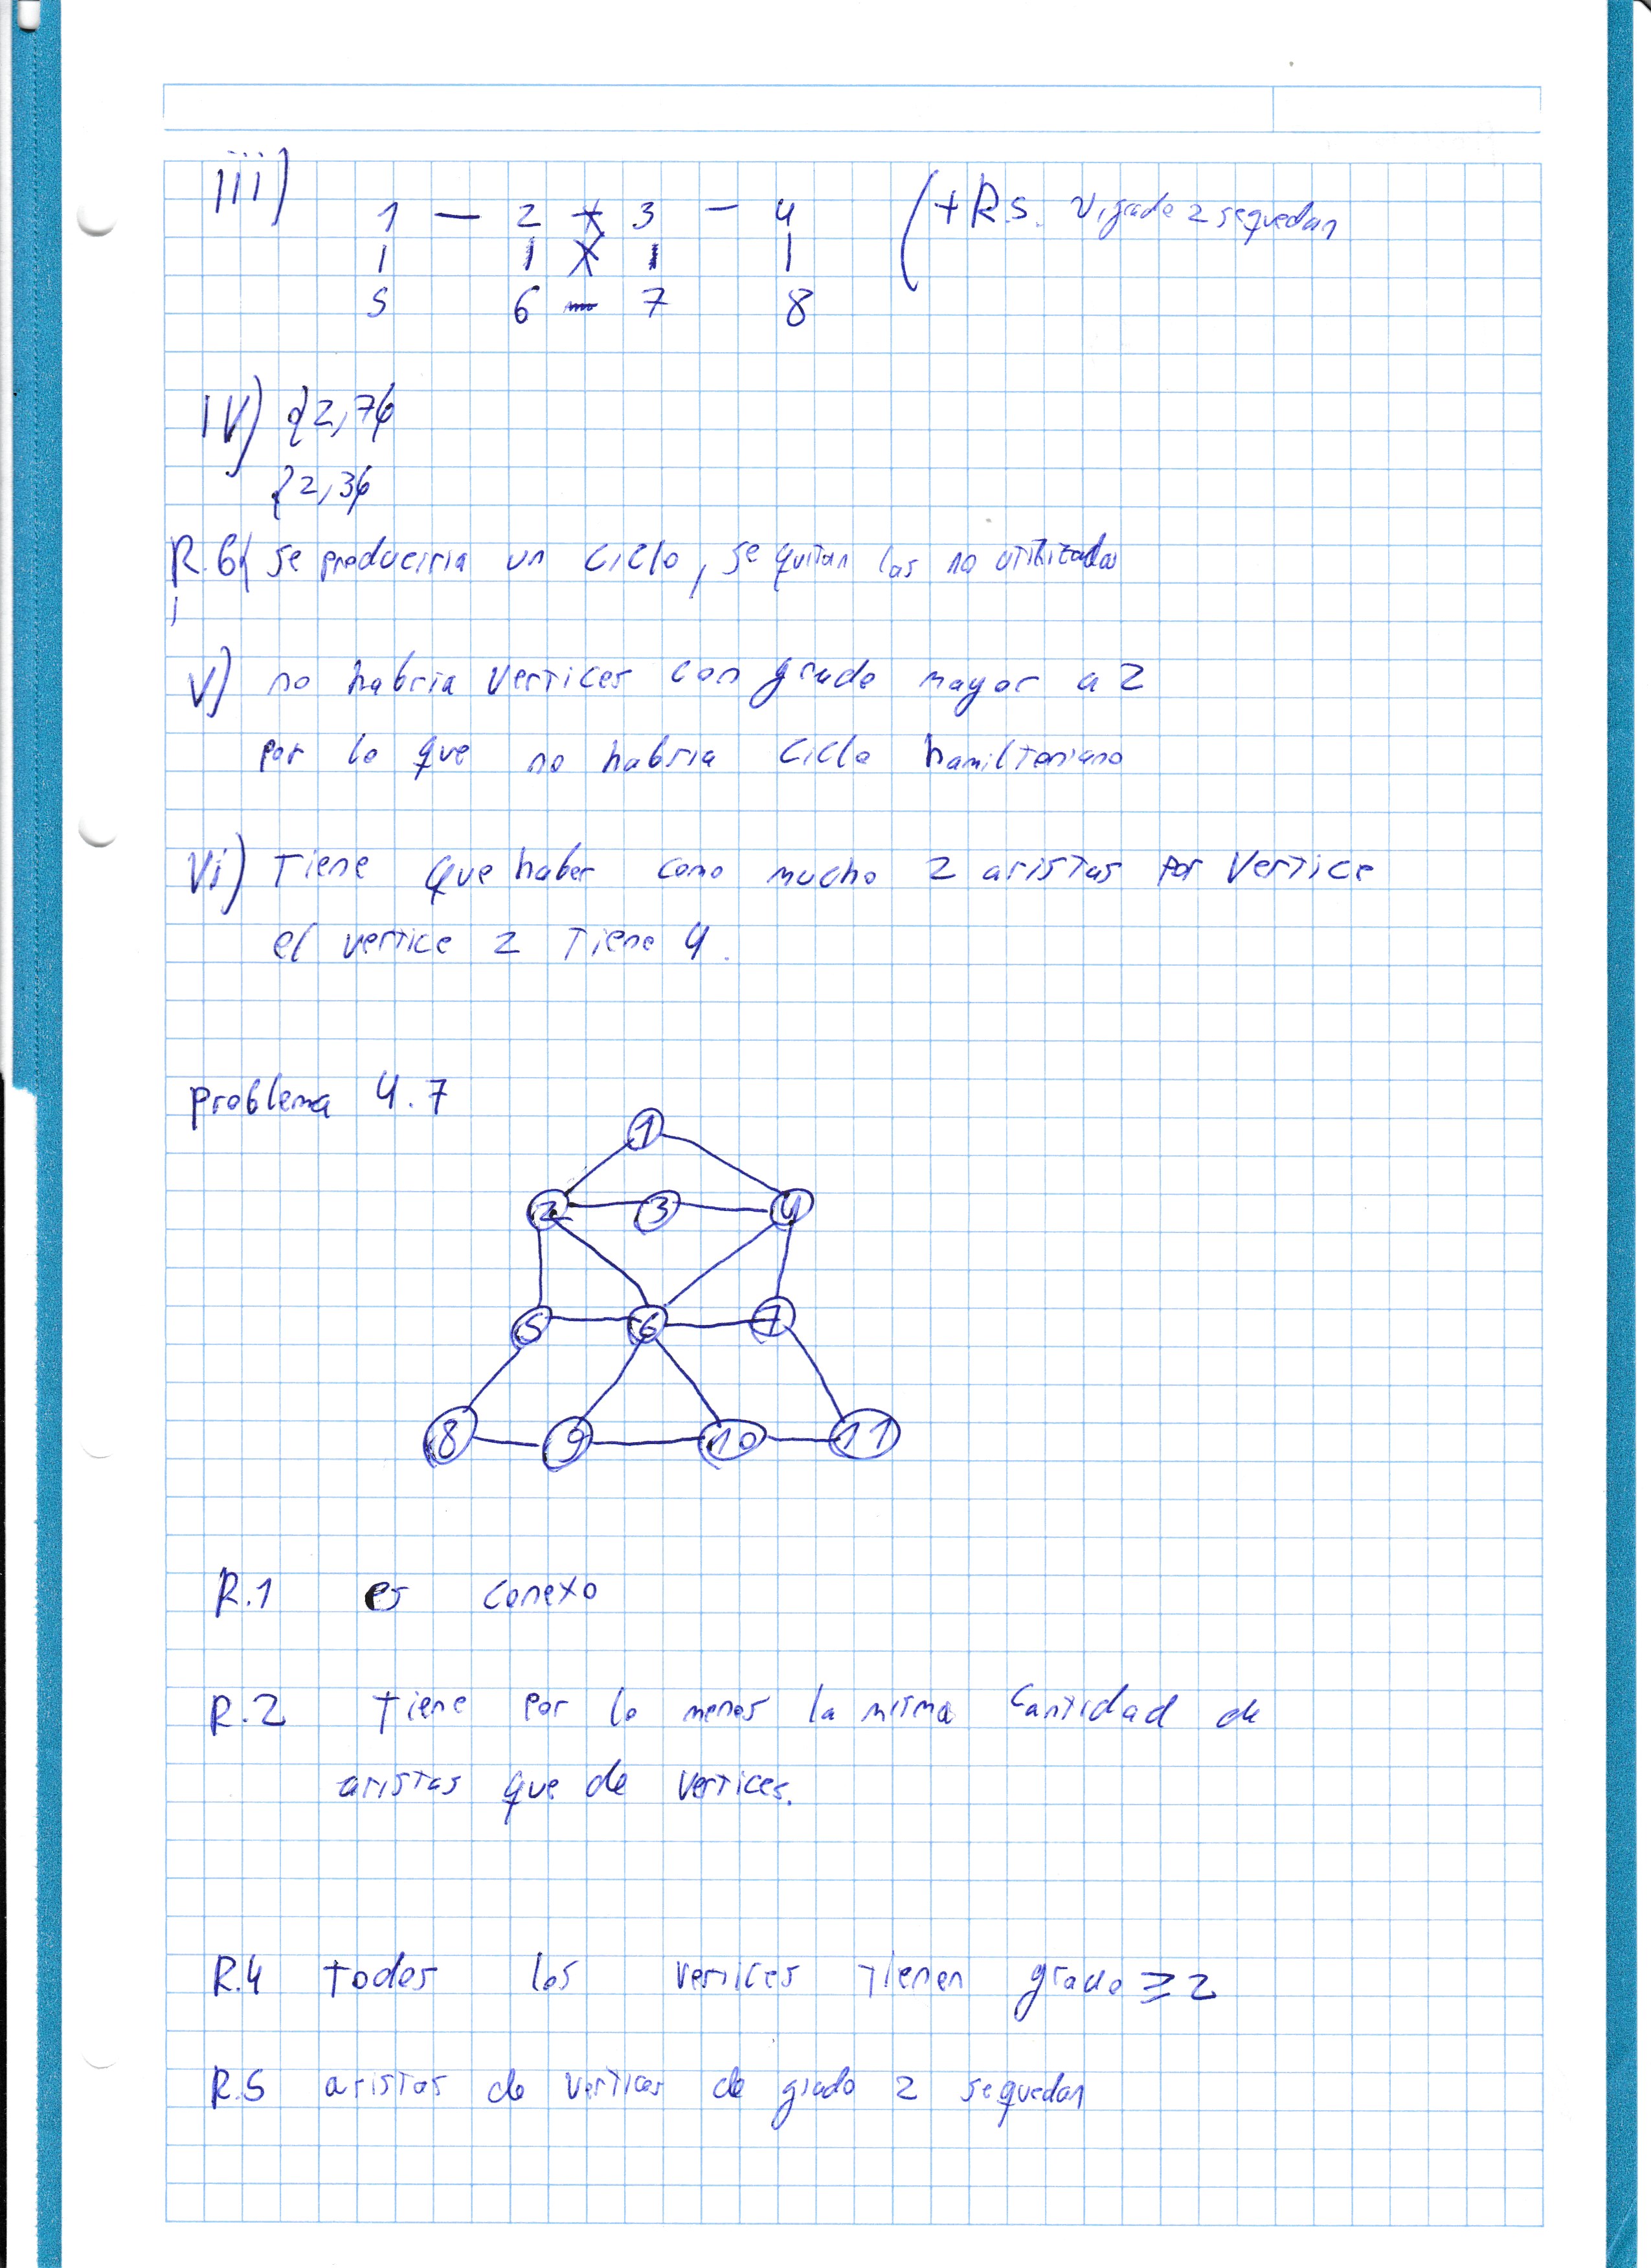 iii)
1 — 2 + 3 - 4 (+R.5. V. grado 2 se quedan
| | X | |
5 6 - 7 8
IV) {2,7}
{2,3}
R.6{ se produciria un ciclo, se quitan las no utilizadas
V) no habria vertices con grado mayor a 2
por lo que no habria ciclo hamiltoniano
Vi) Tiene que haber como mucho 2 aristas por vertice
el vertice 2 Tiene 4.
problema 4.7
1
2 3 4
5 6 7
8 9 10 11
R.1 es conexo
R.2 tiene por lo menos la misma cantidad de
aristas que de vertices.
R.4 todos los vertices tienen grado ≥ 2
R.5 aristas de vertices de grado 2 se quedan